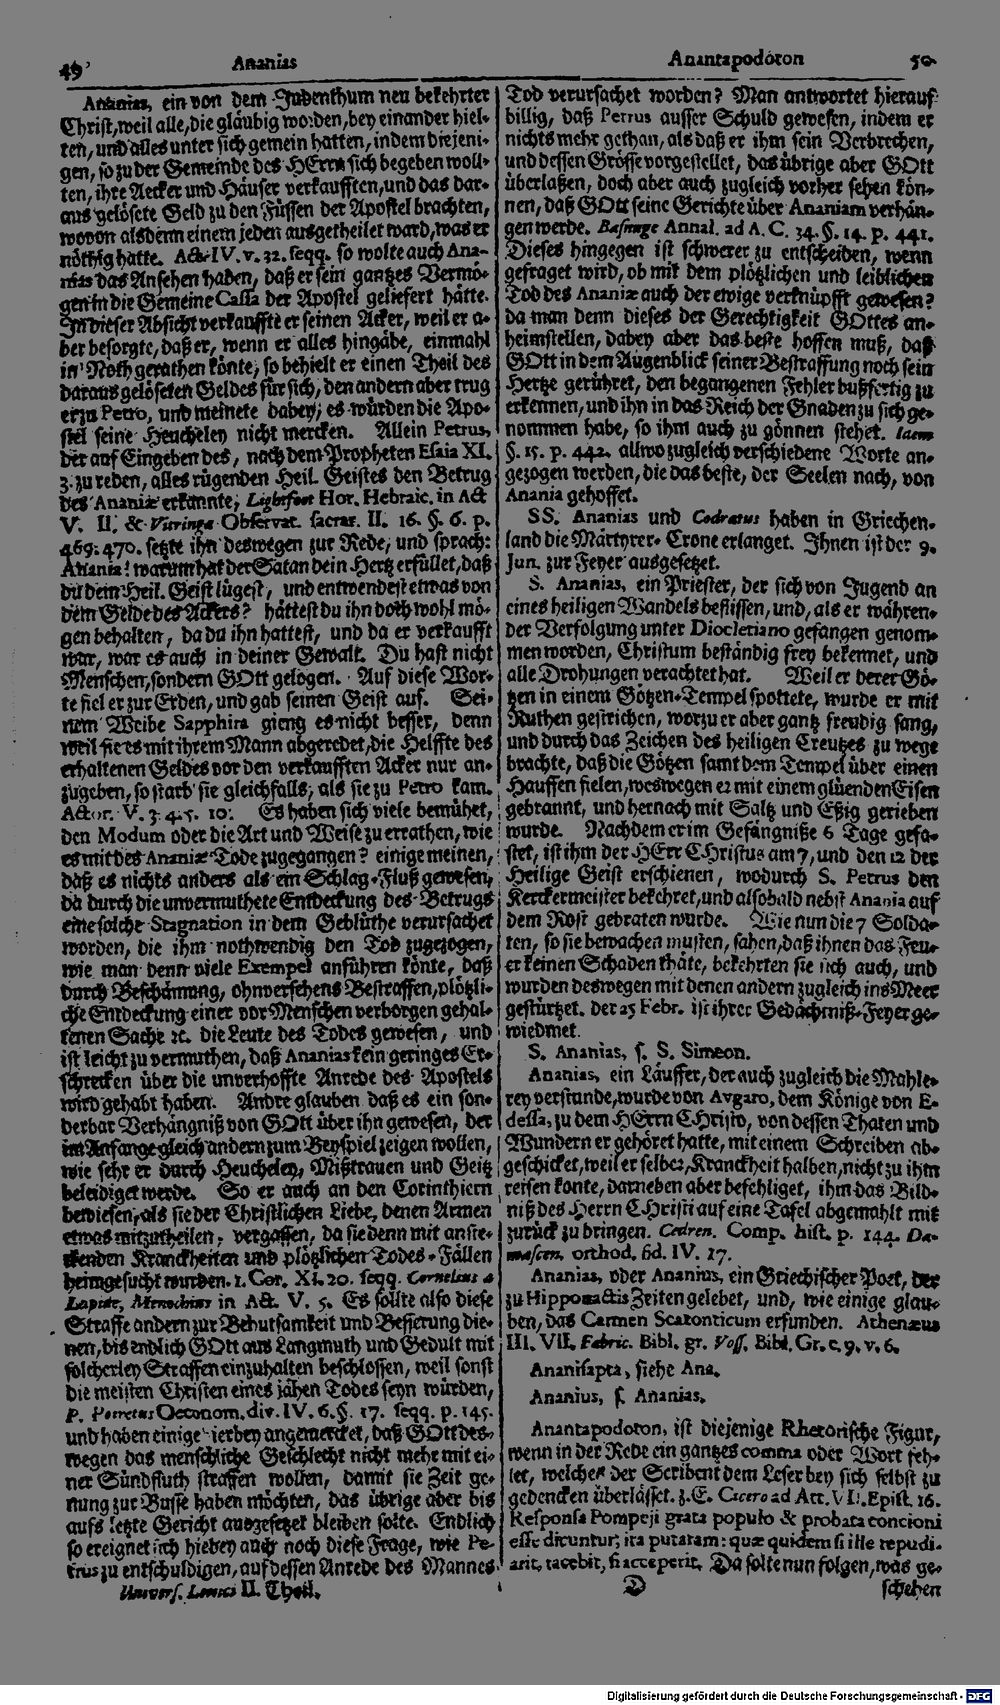 49
Ananias
Anantapodoton
50
Ananias, ein von dem Judenthum neu bekehrter
Christ, weil alle, die gläubig worden, bey einander hiel-
ten, und alles unter sich gemein hatten, indem diejeni-
gen, so zu der Gemeinde des HErrn sich begeben woll-
ten, ihre Aecker und Häuser verkaufften, und das dar-
aus gelösete Geld zu den Füssen der Apostel brachten,
wovon alsdenn einem jeden ausgetheilet ward, was er
nöthig hatte. Act. IV. v. 32. seqq. so wolte auch Ana-
nias das Ansehen haben, daß er sein gantzes Vermö-
gen in die Gemeine Cassa der Apostel geliefert hätte.
In dieser Absicht verkauffte er seinen Acker, weil er a-
ber besorgte, daß er, wenn er alles hingäbe, einmahl
in Noth gerathen könte; so behielt er einen Theil des
daraus gelöseten Geldes für sich, den andern aber trug
er zu Petro, und meinete dabey; es würden die Apo-
stel seine Heucheley nicht mercken. Allein Petrus,
der auf Eingeben des, nach dem Propheten Esaia XI.
3. zu reden, alles rügenden Heil. Geistes den Betrug
des Ananiæ erkannte, Lightfoot Hor. Hebraic. in Act
V. II. & Vitringa Observat. sacrar. II. 16. §. 6. p.
469. 470. setzte ihn deswegen zur Rede, und sprach:
Anania! warum hat der Satan dein Hertz erfüllet, daß
du dem Heil. Geist lügest, und entwendest etwas von
dem Gelde des Ackers? hättest du ihn doch wohl mö-
gen behalten, da du ihn hattest, und da er verkaufft
war, war es auch in deiner Gewalt. Du hast nicht
Menschen, sondern GOtt gelogen. Auf diese Wor-
te fiel er zur Erden, und gab seinen Geist auf. Sei-
nem Weibe Sapphira gieng es nicht besser, denn
weil sie es mit ihrem Mann abgeredet, die Helffte des
erhaltenen Geldes vor den verkaufften Acker nur an-
zugeben, so starb sie gleichfalls, als sie zu Petro kam.
Actor. V. 3. 4. 5. 10. Es haben sich viele bemühet,
den Modum oder die Art und Weise zu errathen, wie
es mit des Ananiæ Tode zugegangen? einige meinen,
daß es nichts anders als ein Schlag-Fluß gewesen,
da durch die unvermuthete Entdeckung des Betrugs
eine solche Stagnation in dem Geblüthe verursachet
worden, die ihm nothwendig den Tod zugezogen,
wie man denn viele Exempel anführen könte, daß
durch Beschämung, ohnversehens Bestraffen, plötzli-
che Entdeckung einer vor Menschen verborgen gehal-
tenen Sache ꝛc. die Leute des Todes gewesen, und
ist leicht zu vermuthen, daß Ananias kein geringes Er-
schrecken über die unverhoffte Anrede des Apostels
wird gehabt haben. Andre glauben daß es ein son-
derbar Verhängniß von GOtt über ihn gewesen, der
im Anfange gleich andern zum Beyspiel zeigen wollen,
wie sehr er durch Heucheley, Mißtrauen und Geitz
beleidiget werde. So er auch an den Corinthiern
bewiesen, als sie der Christlichen Liebe, denen Armen
etwas mitzutheilen, vergassen, da sie denn mit anste-
ckenden Kranckheiten und plötzlichen Todes-Fällen
heimgesucht wurden. 1. Cor. XI. 20. seqq. Cornelius a
Lapide, Menochius in Act. V. 5. Es sollte also diese
Straffe andern zur Behutsamkeit und Besserung die-
nen, bis endlich GOtt aus Langmuth und Gedult mit
solcherley Straffen einzuhalten beschlossen, weil sonst
die meisten Christen eines jähen Todes seyn würden,
P. Poiretus Oeconom. div. IV. 6. §. 17. seqq. p. 145.
und haben einige hierbey angemercket, daß GOtt des-
wegen das menschliche Geschlecht nicht mehr mit ei-
ner Sündfluth straffen wollen, damit sie Zeit ge-
nung zur Busse haben möchten, das übrige aber bis
aufs letzte Gericht ausgesetzet bleiben solte. Endlich
so ereignet sich hiebey auch noch diese Frage, wie Pe-
trus zu entschuldigen, auf dessen Antede des Mannes
Univers. Lexici II. Theil.
Tod verursachet worden? Man antwortet hierauf
billig, daß Petrus ausser Schuld gewesen, indem er
nichts mehr gethan, als daß er ihm sein Verbrechen,
und dessen Grösse vorgestellet, das übrige aber GOtt
überlaßen, doch aber auch zugleich vorher sehen kön-
nen, daß GOtt seine Gerichte über Ananiam verhän-
gen werde. Basnage Annal. ad A. C. 34. §. 14. p. 441.
Dieses hingegen ist schwerer zu entscheiden, wenn
gefraget wird, ob mit dem plötzlichen und leiblichen
Tod des Ananiæ auch der ewige verknüpfft gewesen?
da man denn dieses der Gerechtigkeit GOttes an-
heimstellen, dabey aber das beste hoffen muß, daß
GOtt in dem Augenblick seiner Bestraffung noch sein
Hertze gerühret, den begangenen Fehler bußfertig zu
erkennen, und ihn in das Reich der Gnaden zu sich ge-
nommen habe, so ihm auch zu gönnen stehet. Idem
§. 15. p. 442. allwo zugleich verschiedene Worte an-
gezogen werden, die das beste, der Seelen nach, von
Anania gehoffet.
SS. Ananias und Codratus haben in Griechen-
land die Märtyrer-Crone erlanget. Ihnen ist der 9.
Jun. zur Feyer ausgesetzet.
S. Ananias, ein Priester, der sich von Jugend an
eines heiligen Wandels beflissen, und, als er währen-
der Verfolgung unter Diocletiano gefangen genom-
men worden, Christum beständig frey bekennet, und
alle Drohungen verachtet hat. Weil er derer Gö-
tzen in einem Götzen-Tempel spottete, wurde er mit
Ruthen gestrichen, worzu er aber gantz freudig sang,
und durch das Zeichen des heiligen Creutzes zu wege
brachte, daß die Götzen samt dem Tempel über einen
Hauffen fielen, weswegen er mit einem glüenden Eisen
gebrannt, und hernach mit Saltz und Eßig gerieben
wurde. Nachdem er im Gefängniße 6 Tage gefa-
stet, ist ihm der HErr CHristus am 7, und den 12 der
Heilige Geist erschienen, wodurch S. Petrus den
Kerckermeister bekehret, und alsobald nebst Anania auf
dem Rost gebraten wurde. Wie nun die 7 Solda-
ten, so sie bewachen musten, sahen, daß ihnen das Feu-
er keinen Schaden thäte, bekehrten sie sich auch, und
wurden deswegen mit denen andern zugleich ins Meer
gestürtzet. der 25 Febr. ist ihrer Gedächtniß-Feyer ge-
wiedmet.
S. Ananias, s. S. Simeon.
Ananias, ein Läuffer, der auch zugleich die Mahle-
rey verstunde, wurde von Avgaro, dem Könige von E-
dessa, zu dem HErrn CHristo, von dessen Thaten und
Wundern er gehöret hatte, mit einem Schreiben ab-
geschicket, weil er selber, Kranckheit halben, nicht zu ihm
reisen konte, darneben aber befehliget, ihm das Bild-
niß des Herrn CHristi auf eine Tafel abgemahlt mit
zurück zu bringen. Cedren. Comp. hist. p. 144. Da-
mascen. orthod. fid. IV. 17.
Ananias, oder Ananius, ein Griechischer Poet, der
zu Hipponactis Zeiten gelebet, und, wie einige glau-
ben, das Carmen Scazonticum erfunden. Athenæus
III. VII. Fabric. Bibl. gr. Voss. Bibl. Gr. c. 9. v. 6.
Ananisapta, siehe Ana.
Ananius, s. Ananias.
Anantapodoton, ist diejenige Rhetorische Figur,
wenn in der Rede ein gantzes comma oder Wort feh-
let, welches der Scribent dem Leser bey sich selbst zu
gedencken überlässet. z. E. Cicero ad Att. VII. Epist. 16.
Responsa Pompeji grata populo & probata concioni
esse dicuntur, ita putaram: quæ quidem si ille repudi-
arit, jacebit, si acceperit. Da solte nun folgen, was ge-
D
schehen
Digitalisierung gefördert durch die Deutsche Forschungsgemeinschaft - DFG